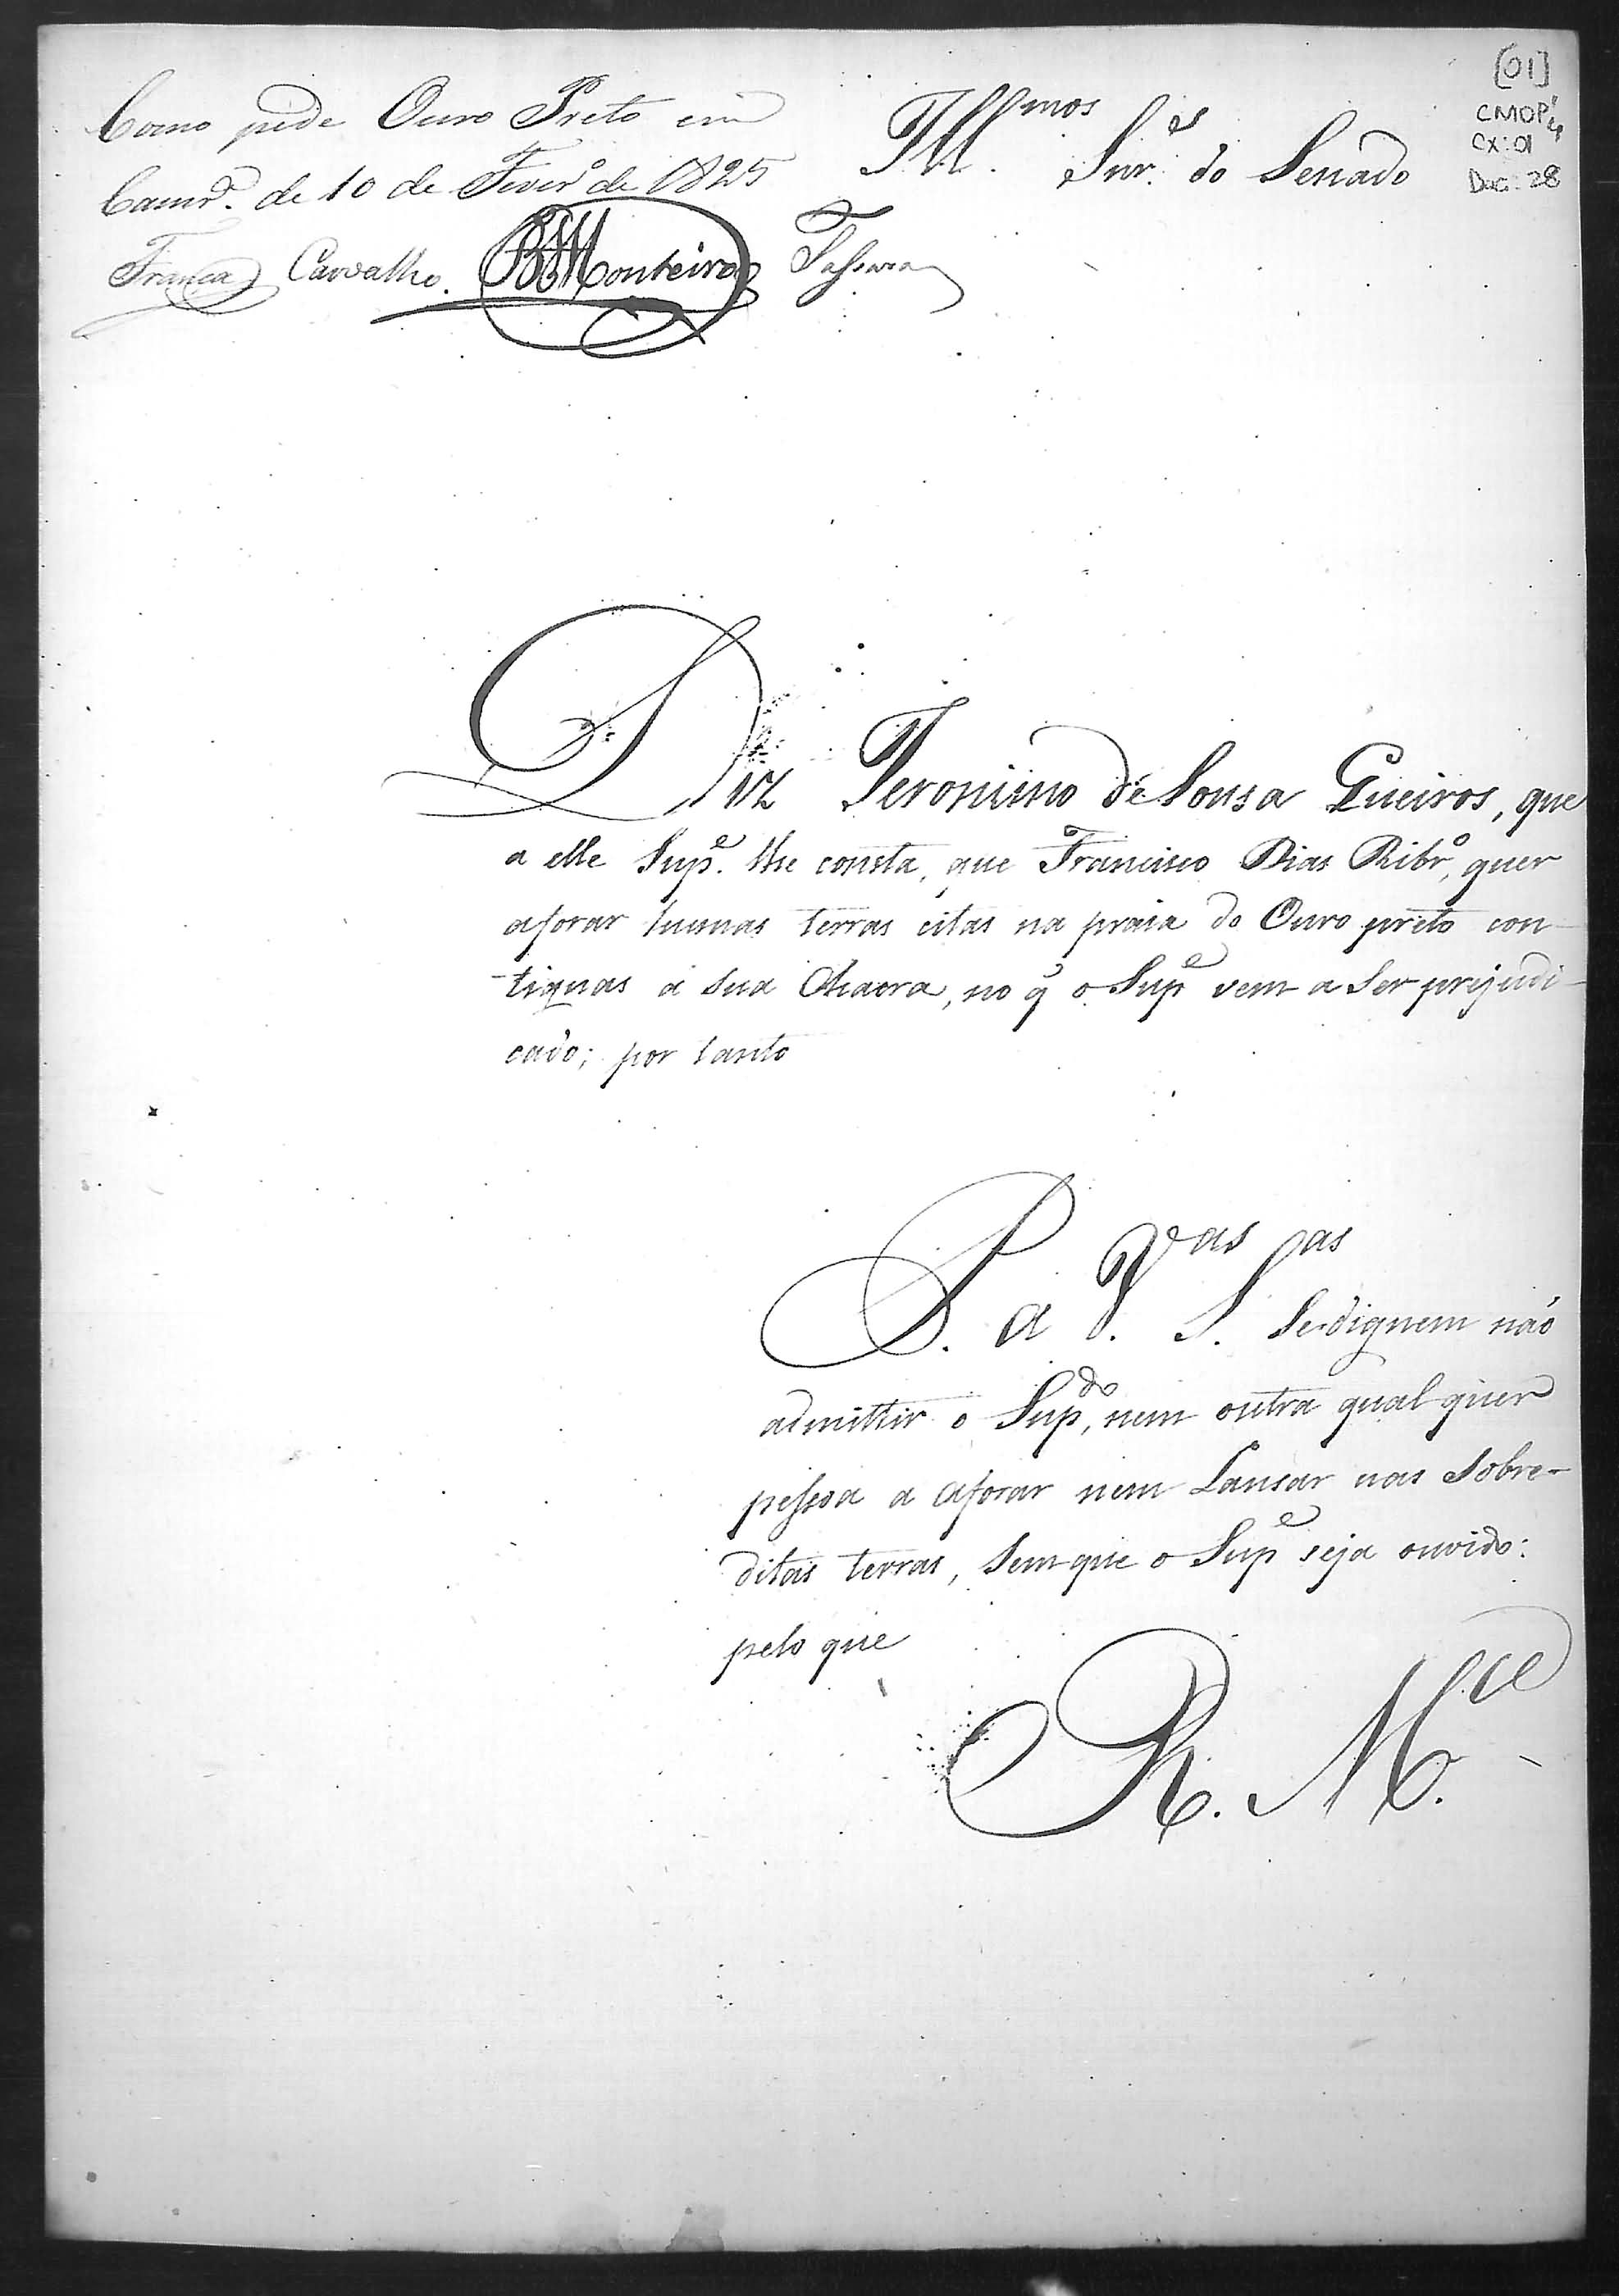 [01]
CMOP
Cx: 01
Doc: 28
Como pede Ouro Preto em
Camr.ª de 10 de Fever.º de 1825
França Carvalho. Monteiro
Ill.mos Snr.es do Senado
Diz Jeronimo de Sousa Queiros, que
a elle Sup.e lhe consta, que Francisco Dias Ribr.º, quer
aforar humas terras citas na praia do Ouro preto con-
-tiguas á sua Chacra, no q̃ o Sup.e vem a Ser prejudi-
cado; por tanto
P. a V.as S.as Se dignem não
admittir o Sup.do, nem outra qual quer
pessoa a aforar nem Lansar nas Sobre-
ditas terras, Sem que o Sup.e seja ouvido:
pelo que
R. M.ce